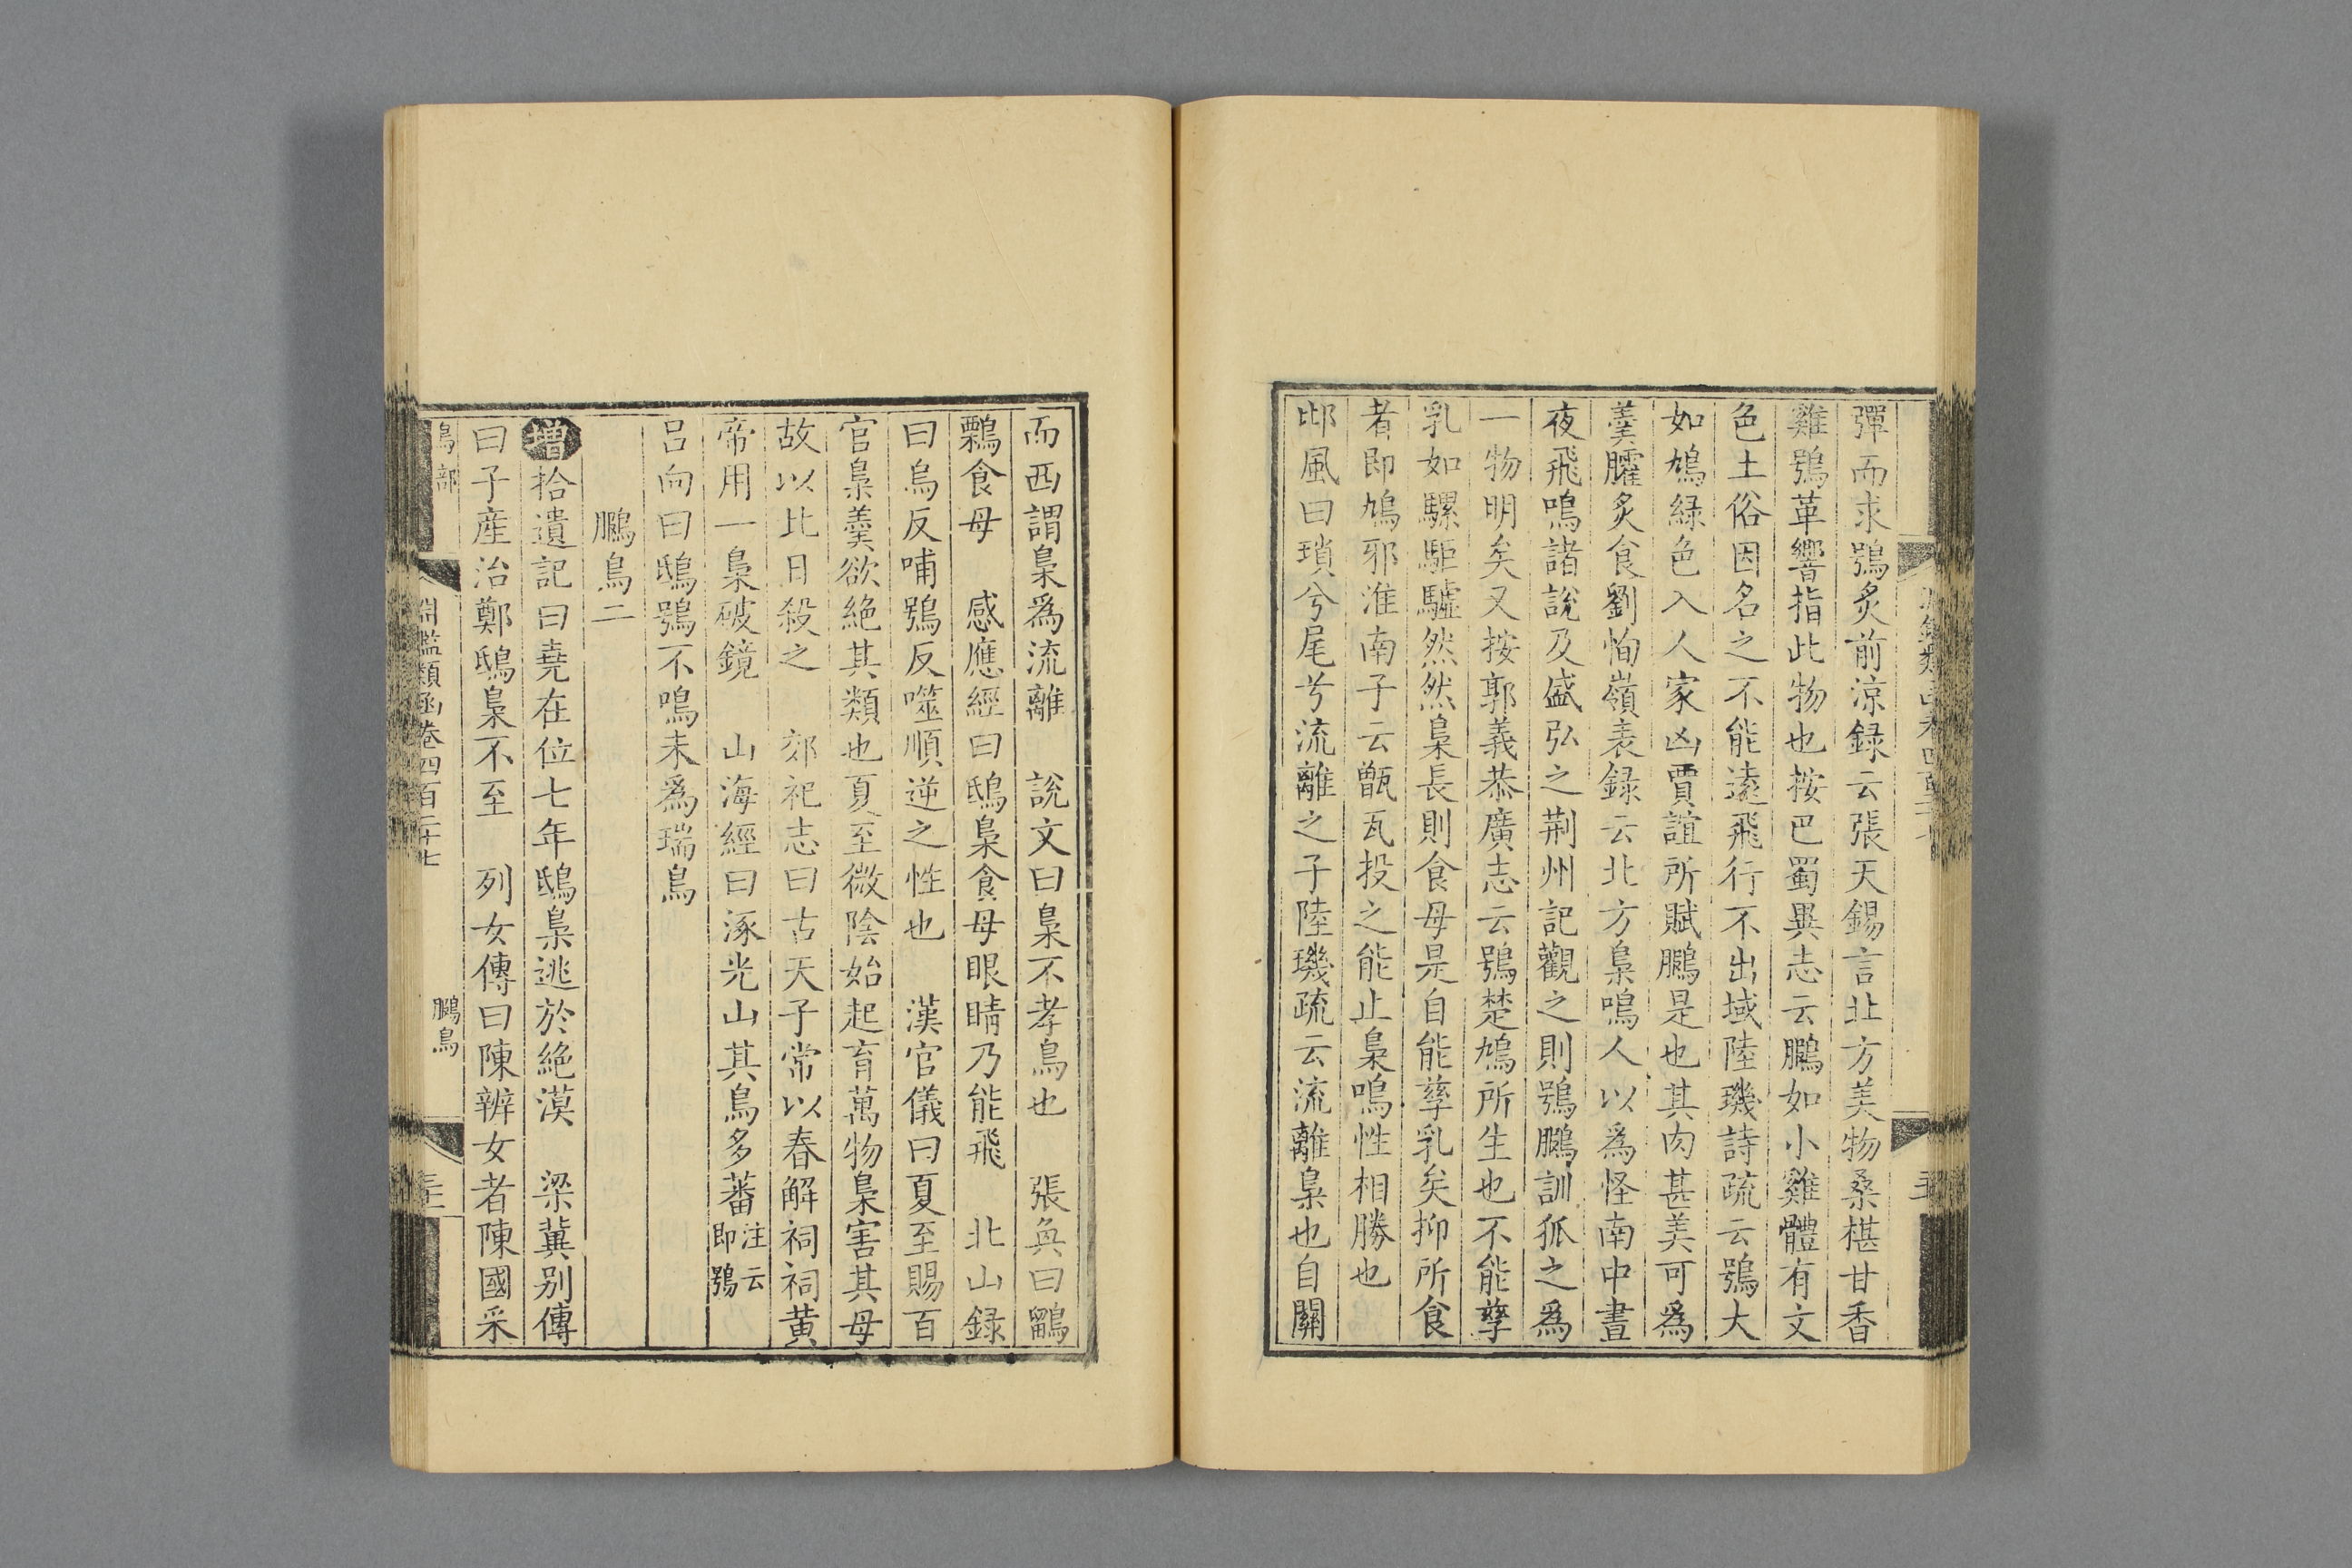 彈而求鴞炙前涼録云張天錫言北方美物桑椹甘香
雞鴞革響指此物也按巴蜀異志云鵩如小雞體有文
色土俗因名之不能遠飛行不出域陸璣詩疏云鴞大
如鳩緑色入人家凶賈誼所賦鵩是也其肉甚美可爲
羹臛炙食劉恂嶺表録云北方梟鳴人以爲怪南中晝
夜飛鳴諸說及盛弘之荆州記觀之則鴞鵩訓狐之爲
一物明矣又按郭義恭廣志云鴞楚鳩所生也不能孳
乳如騾駏驉然然梟長則食母是自能孳乳矣抑所食
者即鳩邪淮南子云甑瓦投之能止梟鳴性相勝也
邶風曰瑣兮尾兮流離之子陸璣疏云流離梟也自關
而西謂梟爲流離　說文曰梟不孝鳥也　張奐曰鸓
鷅食母　感應經曰鴟梟食母眼睛乃能飛　北山録
曰烏反哺鴞反噬順逆之性也　漢官儀曰夏至賜百
官梟羹欲絶其類也夏至微陰始起育萬物梟害其母
故以此日殺之　郊祀志曰古天子常以春解祠祠黄
帝用一梟破鏡　山海經曰涿光山其鳥多蕃注云即鴞
吕向曰鴟鴞不鳴未爲瑞鳥
鵩鳥二
增拾遺記曰堯在位七年鴟梟逃於絶漠　梁冀别傳
曰子産治鄭鴟梟不至　列女傳曰陳辨女者陳國采
鳥部
淵鑑類函卷四百二十七
鵩鳥